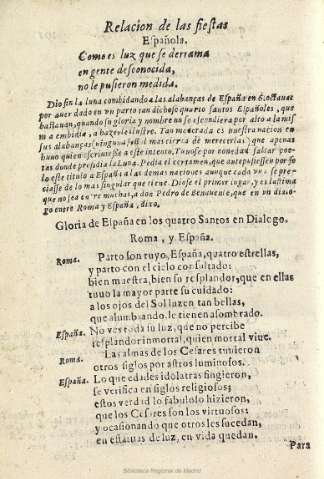 Relacion de las fiestas
Española.
Como es luz que se derrama
en gente desconocida,
no le pusieron medida.
Dio fin la luna combidando a las alabanças de España en 6. octauas
por auer dado en vn parto tan dichoso quatro Santos Españoles, que
bastauan, quando su gloria y nombre no se escondiera por alto a la mis
ma embidia, a hazerse ilustre. Tan
sus alabanças
huuo quien escriuiesse a este intento,
tas donde presidia la Luna. Pedia el certamen, que antepusiessen por so
lo este titulo a España a las demas naciones aunque cada vna se pre-
ciasse de lo mas singular que tiene. Diose el primer lugar, y es lastima
que no sea entre muchas, a don Pedro de Benauente, que en vn dialo-
go entre Roma y España, dixo.
Gloria de España en los quatro Santos en Dialogo.
Roma, y España.
Roma. Parto son tuyo, España, quatro estrellas,
y parto con el cielo consultado:
bien muestra, bien su resplandor, que en ellas
tuuo la mayor parte su cuidado:
a los ojos del Sol luzen tan bellas,
que alumbrando le tienen assombrado.
España. No ves toda su luz, que no percibe
resplandor inmortal, quien mortal viue.
Roma. Las almas de los Cesares tuuieron
otros siglos por astros luminosos.
España. Lo que edades idolatras fingieron,
se verifica en siglos religiosos;
estos verdad lo fabuloso hizieron,
que los Cesares son los virtuosos;
y ocasionando que otros les sucedan,
en estatuas de luz, en vida quedan.
Para
Biblioteca Regional de Madrid